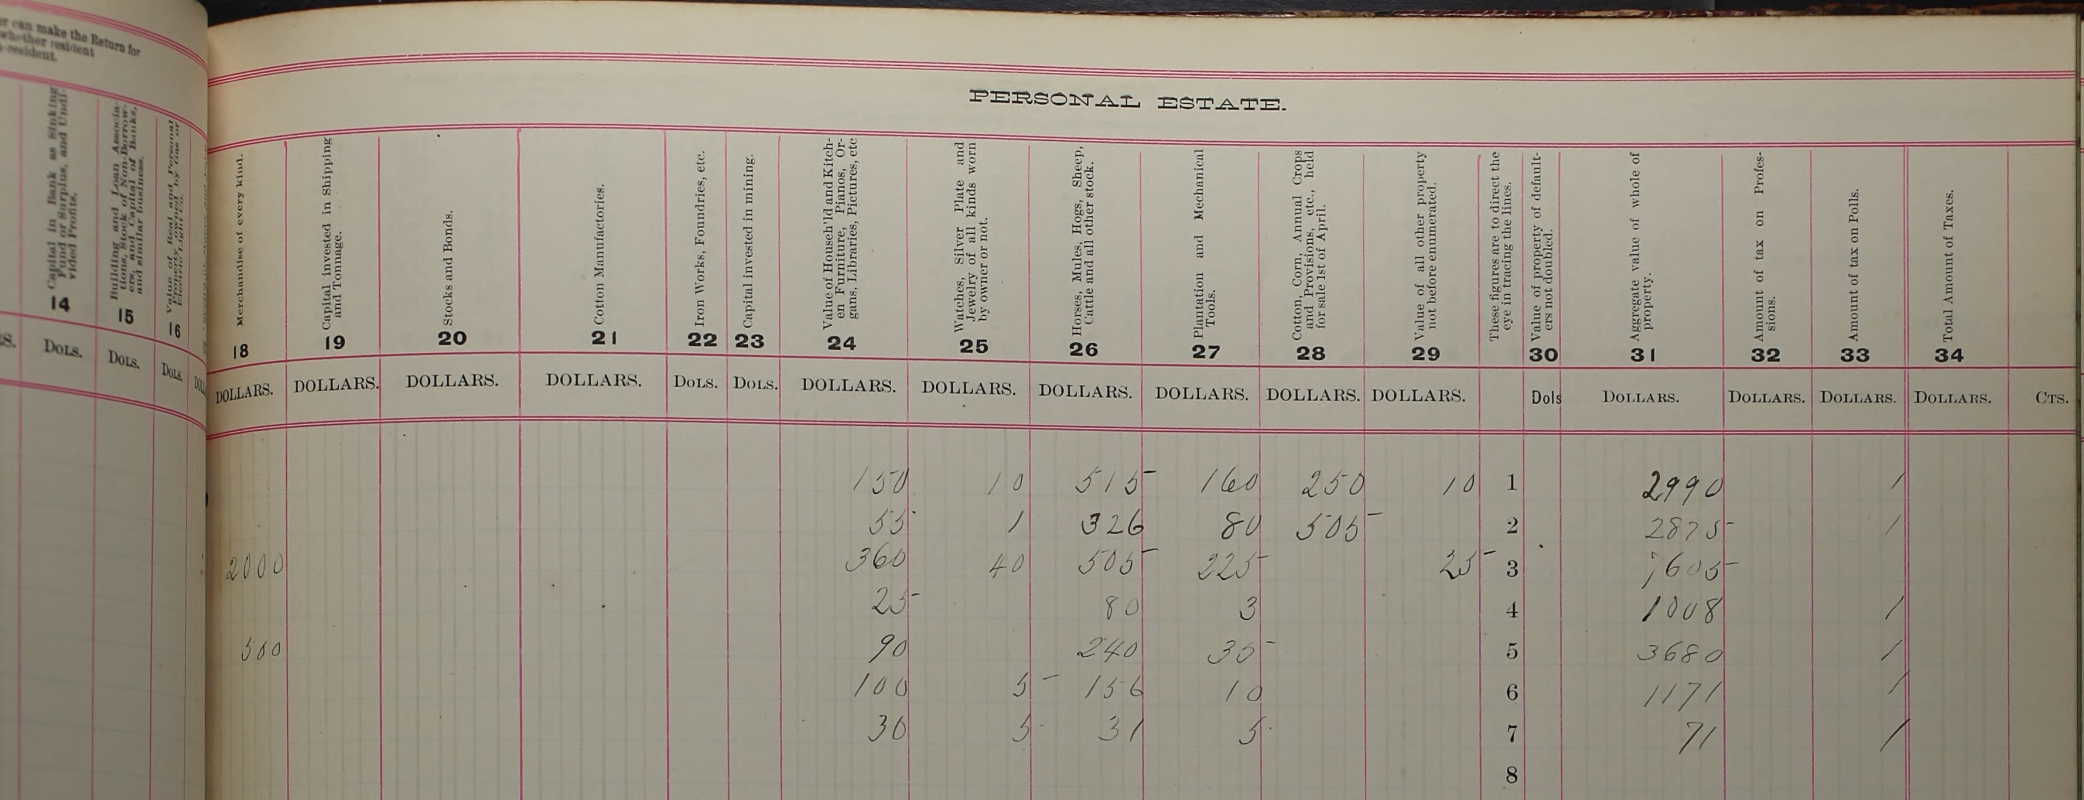 er can make the Return for
whether resident
-resident.
PERSONAL ESTATE.
Capital in Bank as Sinking Fund or Surplus, and Undivided Profits.
14
Building and Loan Associations, Stock of Non-Borrowers, and Capital of Banks, and similar business.
15
Value of Real and Personal Property owned by Gas or Electric Light Co.
16
Merchandise of every kind.
18
Capital Invested in Shipping and Tonnage.
19
Stocks and Bonds.
20
Cotton Manufactories.
21
Iron Works, Foundries, etc.
22
Capital invested in mining.
23
Value of Househ'ld and Kitchen Furniture, Pianos, Organs, Libraries, Pictures, etc
24
Watches, Silver Plate and Jewelry of all kinds worn by owner or not.
25
Horses, Mules, Hogs, Sheep, Cattle and all other stock.
26
Plantation and Mechanical Tools.
27
Cotton, Corn, Annual Crops and Provisions, etc., held for sale 1st of April.
28
Value of all other property not before enumerated.
29
These figures are to direct the eye in tracing the lines.
Value of property of defaulters not doubled.
30
Aggregate value of whole of property.
31
Amount of tax on Professions.
32
Amount of tax on Polls.
33
Total Amount of Taxes.
34
DOLS. DOLS. DOLS. DOLLARS. DOLLARS. DOLLARS. DOLLARS. DOLS. DOLS. DOLLARS. DOLLARS. DOLLARS. DOLLARS. DOLLARS. DOLLARS. Dols DOLLARS. DOLLARS. DOLLARS. DOLLARS. CTS.
150 10 515 160 250 10 1 2990 1
55 1 326 80 505 2 2875 1
2000 360 40 505 225 25 3 7605
25 80 3 4 1008 1
500 90 240 35 5 3680 1
100 5 156 10 6 1171 1
30 5 31 5 7 71 1
8